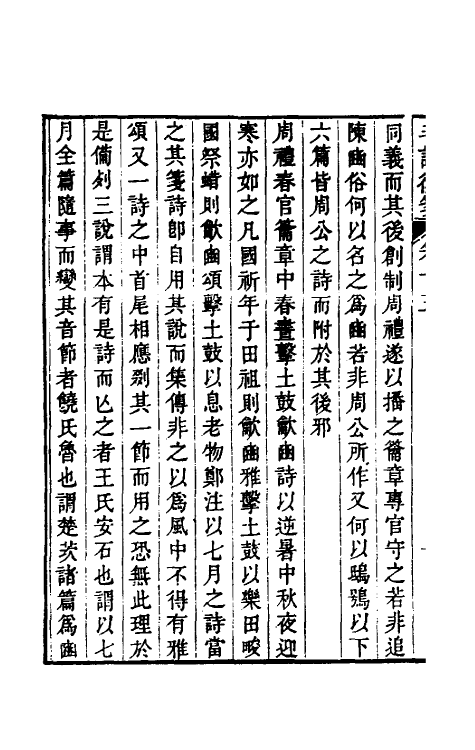 同義而其後創制周禮遂以播之籥章專官守之若非追
陳豳俗何以名之爲豳若非周公所作又何以鴟鴞以下
六篇皆周公之詩而附於其後邪
周禮春官籥章中春晝擊土鼓龡豳詩以逆暑中秋夜迎
寒亦如之凡國祈年于田祖則龡豳雅擊土鼓以樂田畯
國祭蜡則龡豳頌擊土鼓以息老物鄭注以七月之詩當
之其箋詩即自用其說而集傳非之以爲風中不得有雅
頌又一詩之中首尾相應剟其一節而用之恐無此理於
是僃列三說謂本有是詩而亾之者王氏安石也謂以七
月全篇隨事而變其音節者饒氏魯也謂楚茨諸篇爲豳